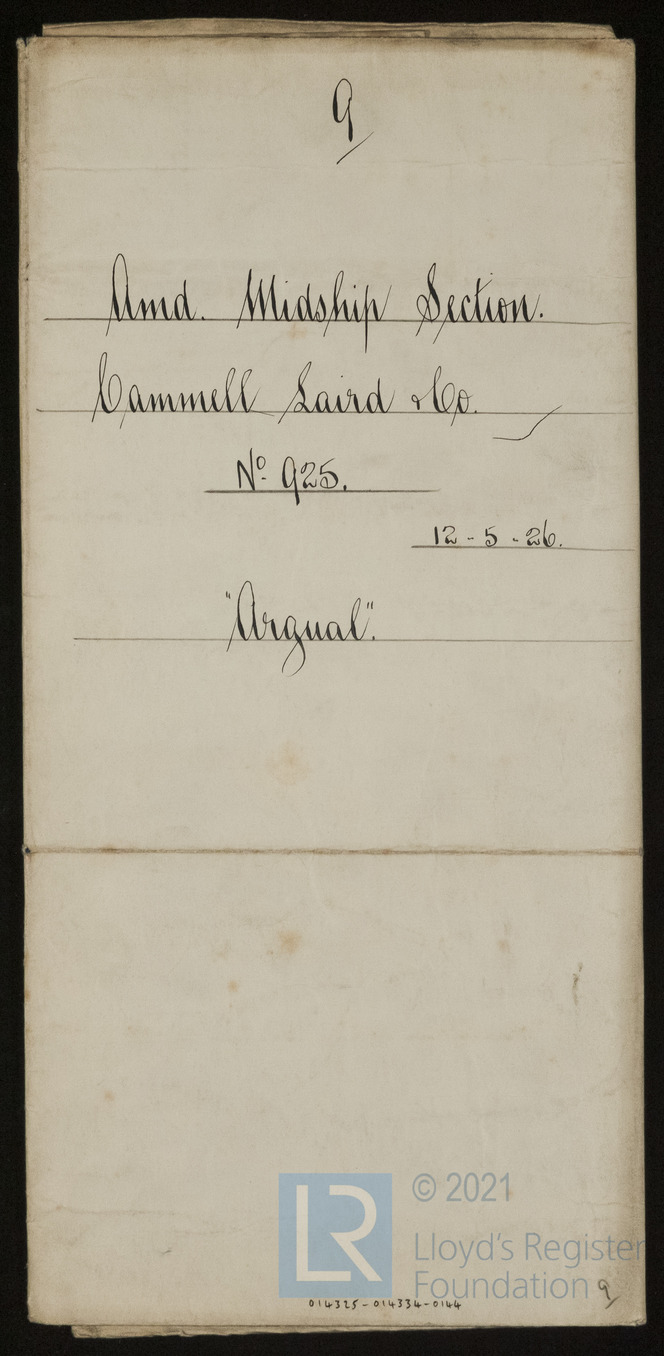 9
Amd. Midship Section.
Cammell Laird & Co.
No. 925.
12-5-26.
"Argual".
LR
© 2021
Lloyd's Register
Foundation
9
014325-014334-0144